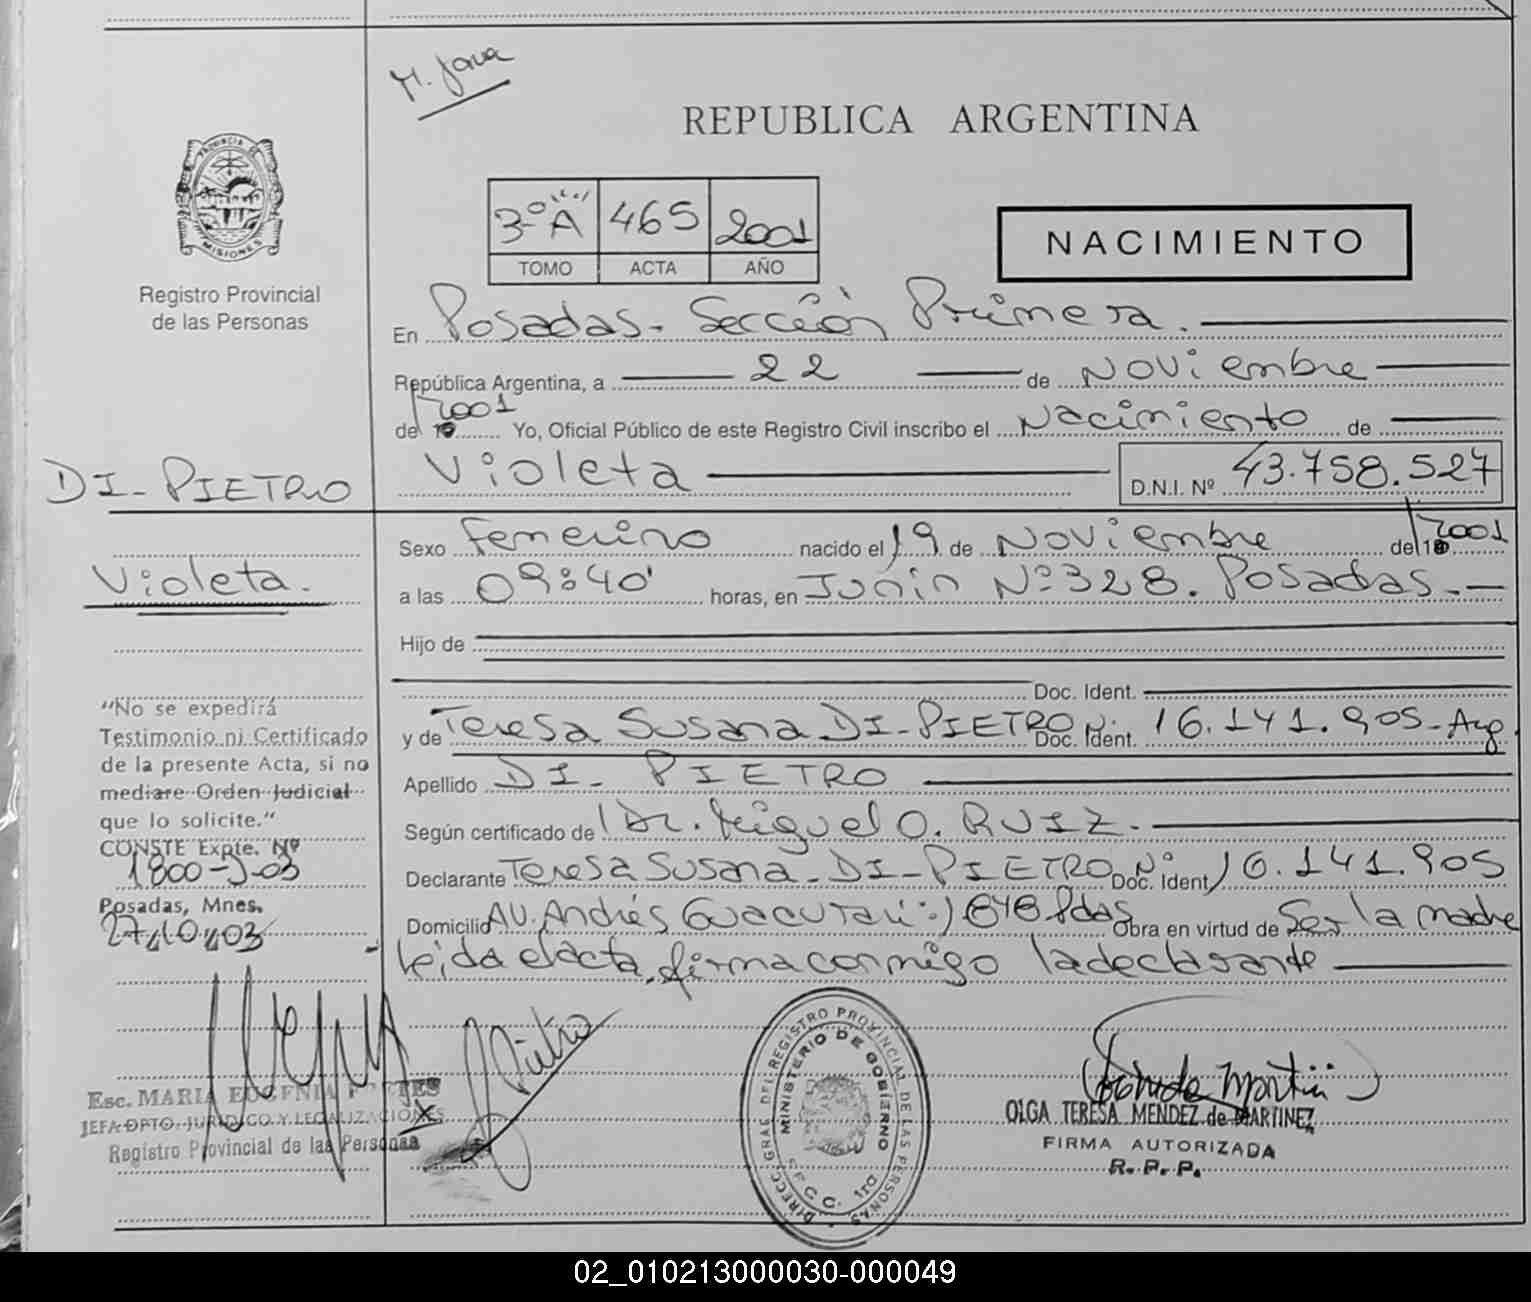 M. Jova
REPUBLICA ARGENTINA
PROVINCIA DE MISIONES
Registro Provincial
de las Personas
3º A 465 2001
TOMO ACTA AÑO
NACIMIENTO
En Posadas - Sección Primera.
República Argentina, a 22 de Noviembre
de 2001 Yo, Oficial Público de este Registro Civil inscribo el Nacimiento de
Violeta D.N.I. Nº 43.758.527
DI-PIETRO
Violeta.
Sexo Femenino nacido el 19 de Noviembre de 2001
a las 09:40' horas, en Junin Nº 328. Posadas.-
Hijo de
Doc. Ident.
y de Teresa Susana DI-PIETRO Doc. Ident. N. 16.141.905-Arg.
Apellido DI-PIETRO
Según certificado de Dr. Miguel O. RUIZ.-
Declarante Teresa Susana DI-PIETRO Doc. Ident Nº 16.141.905
Domicilio AV. Andrés Guacurari: 1848 Pdas Obra en virtud de Ser la madre
leida el acta, firma conmigo la declarante
"No se expedirá
Testimonio ni Certificado
de la presente Acta, si no
mediare Orden Judicial
que lo solicite."
CONSTE Expte. Nº
1800-J-03
Posadas, Mnes.
27/10/03
Esc. MARIA EUGENIA
JEFA DPTO. JURIDICO Y LEGALIZACIONES
Registro Provincial de las Personas
DIRECC. GRAL DEL REGISTRO PROVINCIAL DE LAS PERSONAS
MINISTERIO DE GOBIERNO
OLGA TERESA MENDEZ de MARTINEZ
FIRMA AUTORIZADA
R. P. P.
02_010213000030-000049